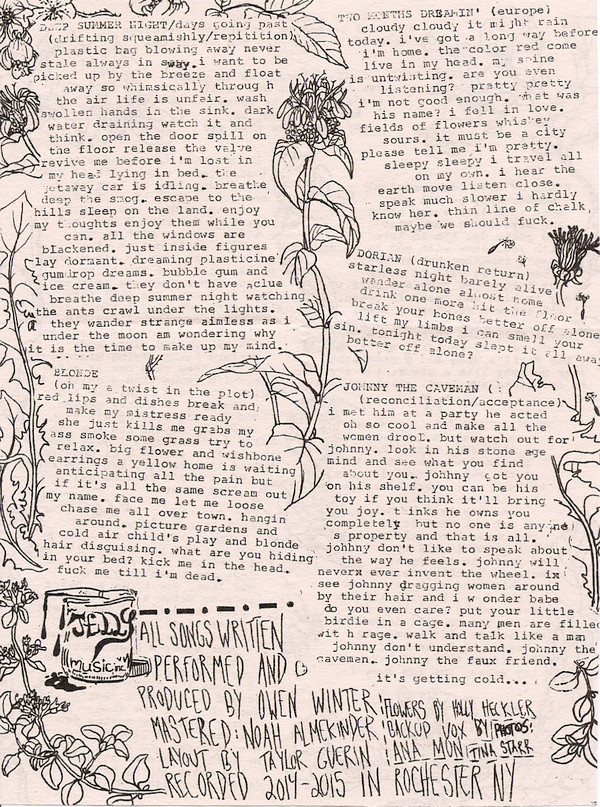 DEEP SUMMER NIGHT/days going past
(drifting squeamishly/repitition)
plastic bag blowing away never
stale always in sway.i want to be
picked up by the breeze and float
away so whimsically throug h
the air life is unfair. wash
swollen hands in the sink. dark
water draining watch it and
think. open the door spill on
the floor release the valve
revive me before i'm lost in
my head lying in bed. the
getaway car is idling. breathe
deep the smog. escape to the
hills sleep on the land. enjoy
my thoughts enjoy them while you
can. all the windows are
blackened. just inside figures
lay dormant. dreaming plasticine
gumdrop dreams. bubble gum and
ice cream. they don't have aclue
breathe deep summer night watching
the ants crawl under the lights.
they wander strange aimless as i
under the moon am wondering why
it is the time to make up my mind.
BLONDE
(oh my a twist in the plot)
red lips and dishes break and
make my mistress ready
she just kills me grabs my
ass smoke some grass try to
relax. big flower and wishbone
earrings a yellow home is waiting
anticipating all the pain but
if it's all the same scream out
my name. face me let me loose
chase me all over town. hangin
around. picture gardens and
cold air child's play and blonde
hair disguising. what are you hiding
in your bed? kick me in the head.
fuck me till i'm dead.
TWO MONTHS DREAMIN' (europe)
cloudy cloudy it might rain
today. i've got a long way before
i'm home. the color red come
live in my head. my spine
is untwisting. are you even
listening? pretty pretty
i'm not good enough. what was
his name? i fell in love.
fields of flowers whiskey
sours. it must be a city
please tell me i'm pretty.
sleepy sleepy i travel all
on my own. i hear the
earth move listen close.
speak much slower i hardly
know her. thin line of chalk
maybe we should fuck.
DORIAN (drunken return)
starless night barely alive
wander alone almost home
drink one more hit the floor
break your bones better off alone
lift my limbs i can smell your
sin. tonight today slept it all away
better off alone?
JOHNNY THE CAVEMAN (:
(reconciliation/acceptance)
i met him at a party he acted
oh so cool and make all the
women drool. but watch out for
johnny. look in his stone age
mind and see what you find
about you. johnny got you
on his shelf. you can be his
toy if you think it'll bring
you joy. t inks he owns you
completely but no one is anyone
s property and that is all.
johhny don't like to speak about
the way he feels. johnny will
nevera ever invent the wheel. ix
see johnny dragging women around
by their hair and i w onder babe
do you even care? put your little
birdie in a cage. many men are filled
wit h rage. walk and talk like a man
johnny don't understand. johnny the
caveman. johnny the faux friend.
it's getting cold...
JELLY
music
ALL SONGS WRITTEN
PERFORMED AND
PRODUCED BY OWEN WINTER
MASTERED: NOAH ALMEKINDER
LAYOUT BY TAYLOR GUERIN
FLOWERS BY HOLLY HECKLER
BACKUP VOX BY PHOTOS:
ANA MON TINA STARR
RECORDED 2014-2015 IN ROCHESTER NY